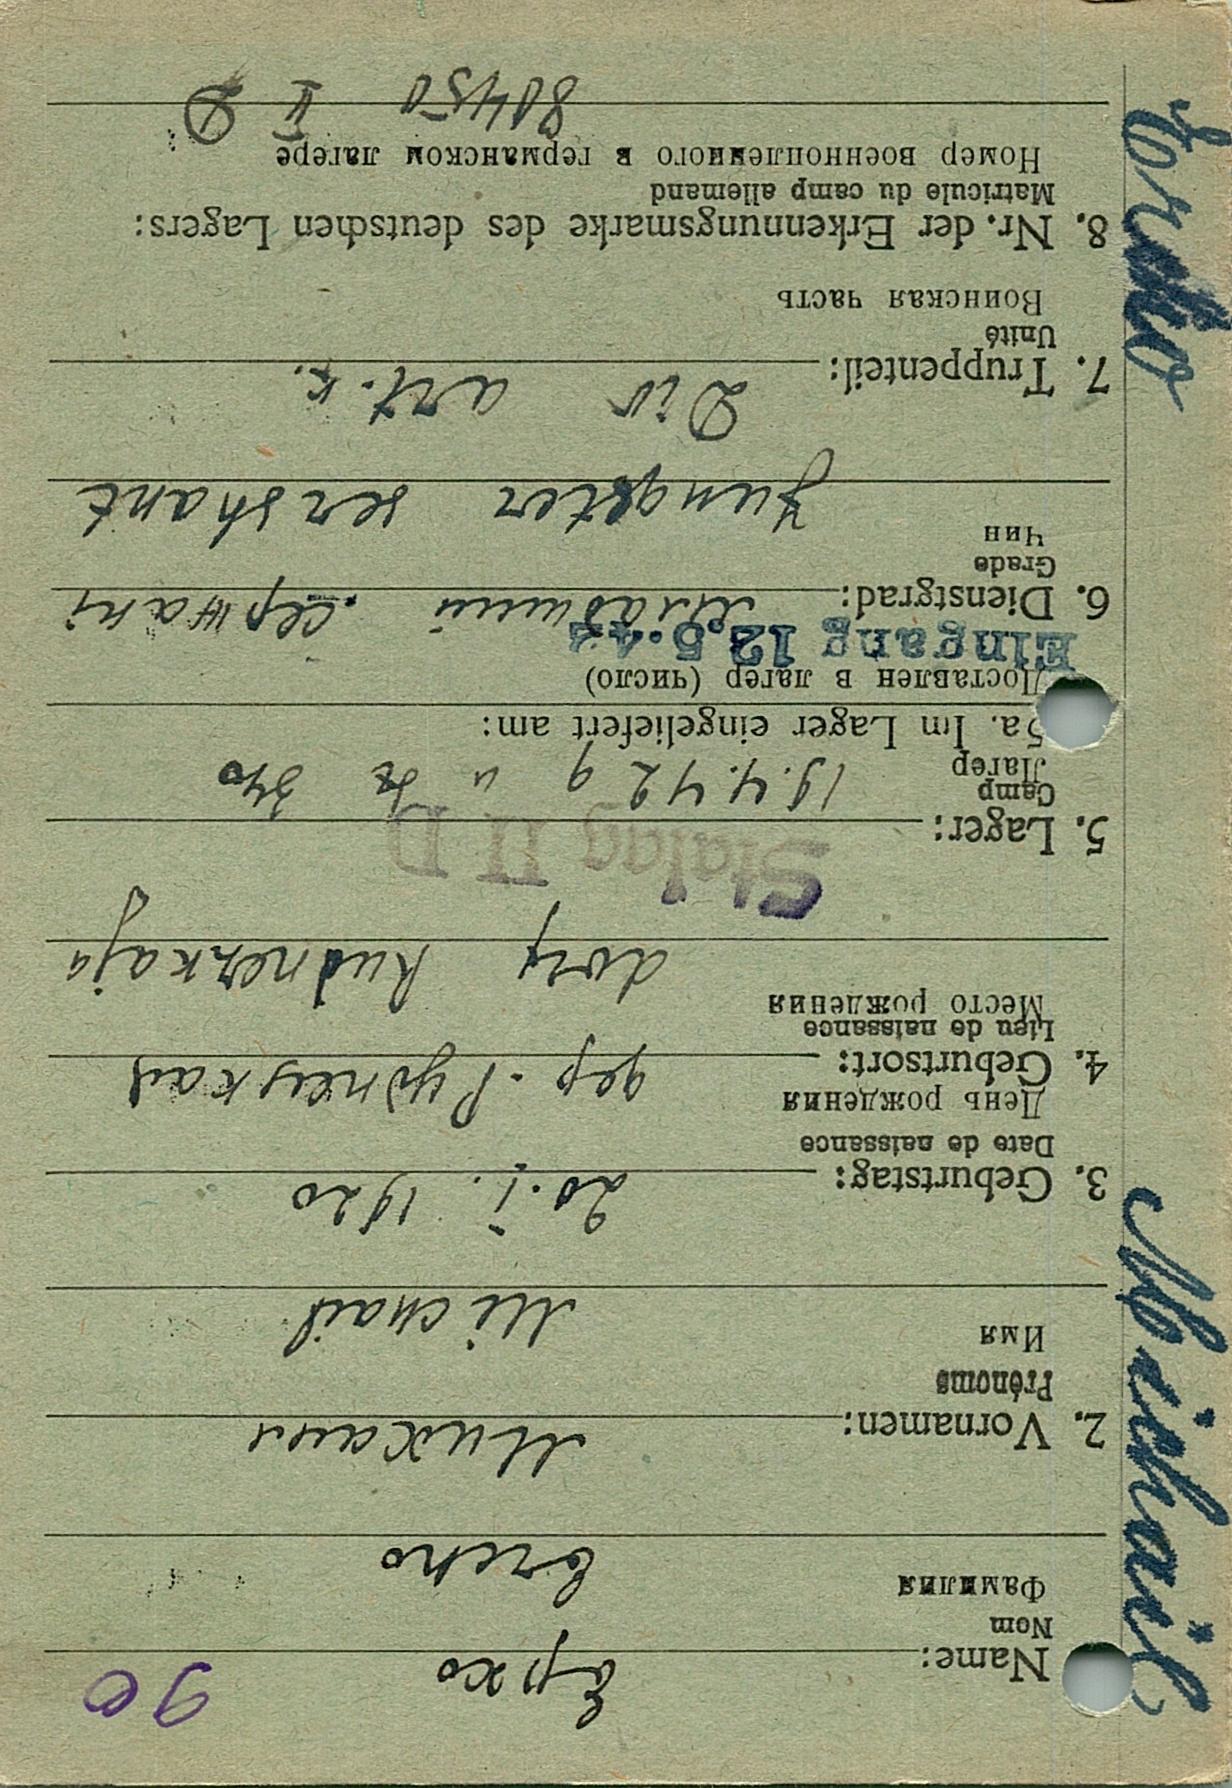 90
Name:
Nom
Фамилия
Ерхо
Ercho
2. Vornamen:
Prénoms
Имя
Михаил
Michail
3. Geburtstag: 20. I. 1920
Date de naissance
День рождения
4. Geburtsort: дер. Руднецкая
Lieu de naissance
Место рождения
dorf Rudnezkaja
Stalag II D
5. Lager:
Camp
Лагерь
19.4.42 9 u 340
5a. Im Lager eingeliefert am:
Доставлен в лагер (число)
Eingang 12.5.42
6. Dienstgrad: Младший сержант
Grade
Чин
Jungster sershant
7. Truppenteil: Div art. r.
Unité
Воинская часть
8. Nr. der Erkennungsmarke des deutschen Lagers:
Matricule du camp allemand
Номер военнопленного в германском лагере
80450 II D
Ercho
Michail